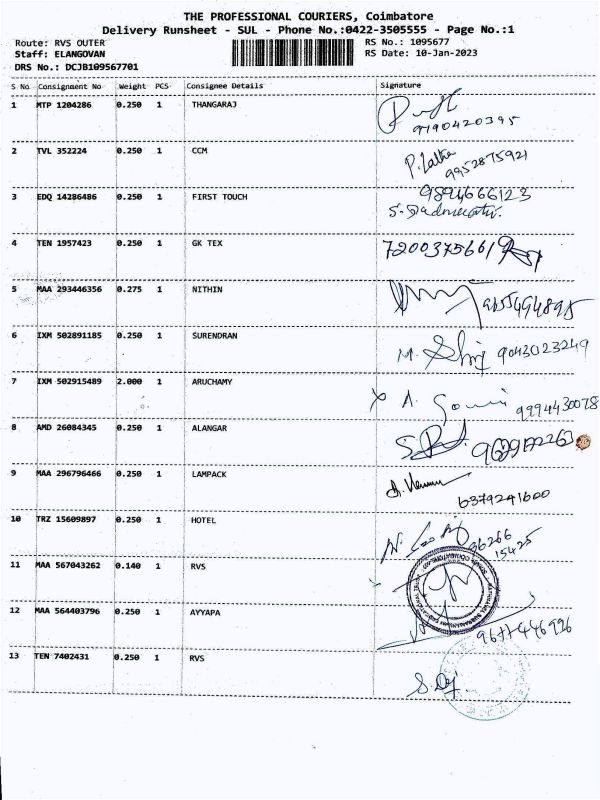 THE PROFESSIONAL COURIERS, Coimbatore
Delivery Runsheet - SUL - Phone No.:0422-3505555 - Page No.:1
Route: RVS OUTER RS No.: 1095677
Staff: ELANGOVAN RS Date: 10-Jan-2023
DRS No.: DCJB109567701
S No Consignment No Weight PCS Consignee Details Signature
1 MTP 1204286 0.250 1 THANGARAJ
9190420395
2 TVL 352224 0.250 1 CCM P. Latha 9952875921
3 EDQ 14286486 0.250 1 FIRST TOUCH 9894666123
4 TEN 1957423 0.250 1 GK TEX 7200375661
5 MAA 293446356 0.275 1 NITHIN
6 IXM 502891185 0.250 1 SURENDRAN M. 9043023249
7 IXM 502915489 2.000 1 ARUCHAMY A. 9994430078
8 AMD 26084345 0.250 1 ALANGAR
9 MAA 296796466 0.250 1 LAMPACK
6379241600
10 TRZ 15609897 0.250 1 HOTEL 96266
15425
11 MAA 567043262 0.140 1 RVS
12 MAA 564403796 0.250 1 AYYAPA 9677446926
13 TEN 7402431 0.250 1 RVS